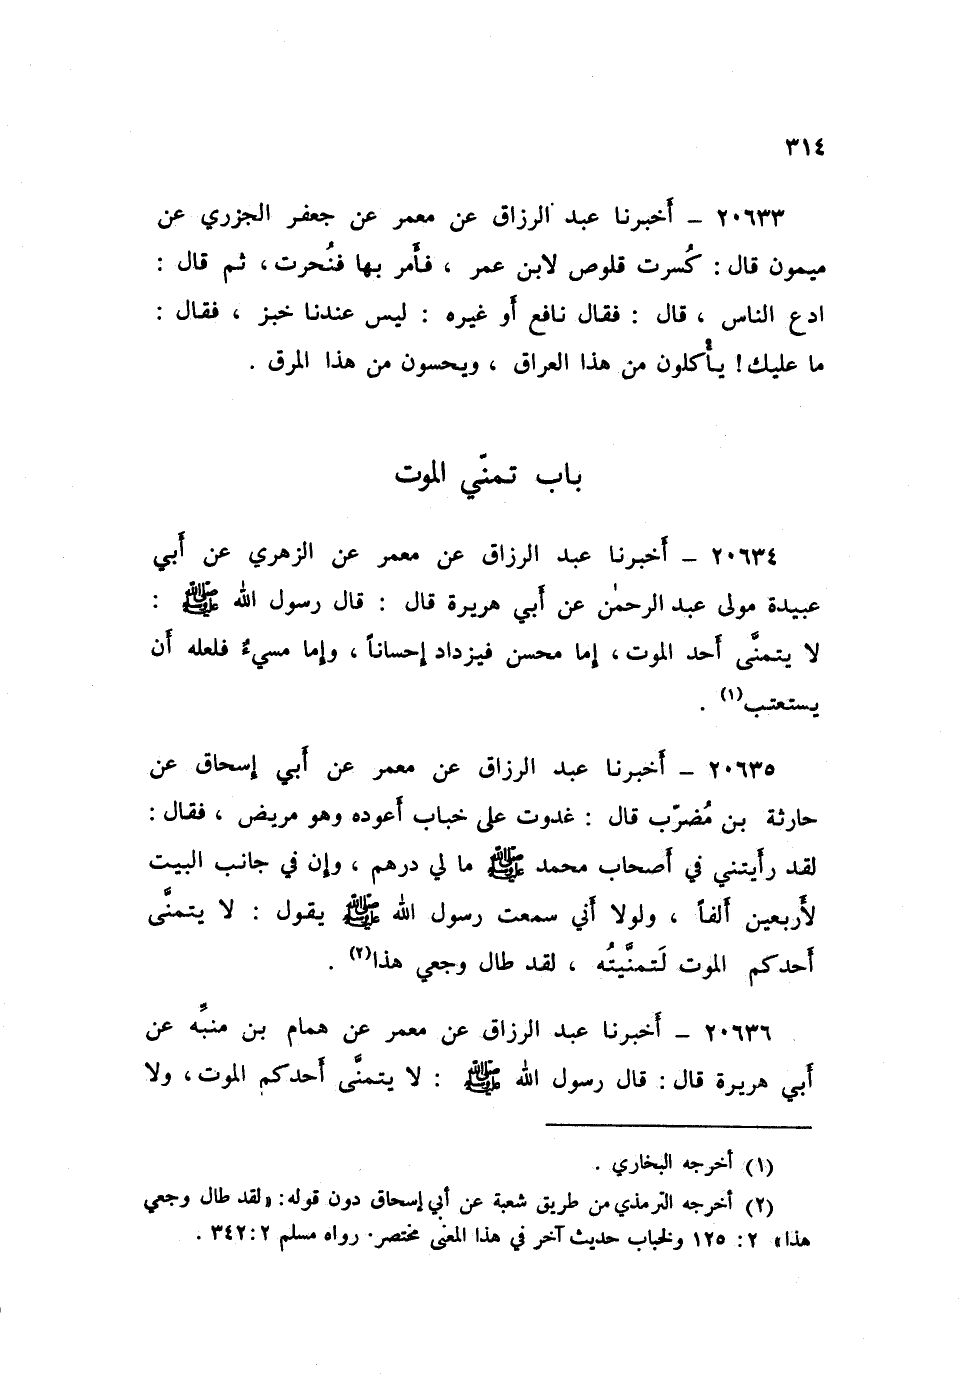 ٣١٤
٢٠٦٣٣ – أخبرنا عبد الرزاق عن معمر عن جعفر الجزري عن
ميمون قال : كُسرت قلوص لابن عمر ، فأَمر بها فنُحرت ، ثم قال :
ادع الناس ، قال : فقال نافع أَو غيره : ليس عندنا خبز ، فقال :
ما عليك ! يأْكلون من هذا العراق ، ويحسون من هذا المرق .
باب تمنّي الموت
٢٠٦٣٤ – أَخبرنا عبد الرزاق عن معمر عن الزهري عن أَبي
عبيدة مولى عبد الرحمٰن عن أَبي هريرة قال : قال رسول الله ﷺ :
لا يتمنَّى أَحد الموت ، إما محسن فيزداد إحساناً ، وإما مسيءٌ فلعله أَن
يستعتب(١) .
٢٠٦٣٥ – أَخبرنا عبد الرزاق عن معمر عن أَبي إسحاق عن
حارثة بن مُضرّب قال : غدوت على خباب أَعوده وهو مريض ، فقال :
لقد رأَيتني في أَصحاب محمد ﷺ ما لي درهم ، وإن في جانب البيت
لأَربعين أَلفاً ، ولولا أَني سمعت رسول الله ﷺ يقول : لا يتمنَّى
أَحدكم الموت لَتمنَّيتُه ، لقد طال وجعي هذا(٢) .
٢٠٦٣٦ – أَخبرنا عبد الرزاق عن معمر عن همام بن منبِّه عن
أَبي هريرة قال : قال رسول الله ﷺ : لا يتمنَّى أَحدكم الموت ، ولا
(١) أخرجه البخاري .
(٢) أخرجه الترمذي من طريق شعبة عن أبي إسحاق دون قوله : «لقد طال وجعي
هذا» ٢ : ١٢٥ ولخباب حديث آخر في هذا المعنى مختصر. رواه مسلم ٢ : ٣٤٢ .